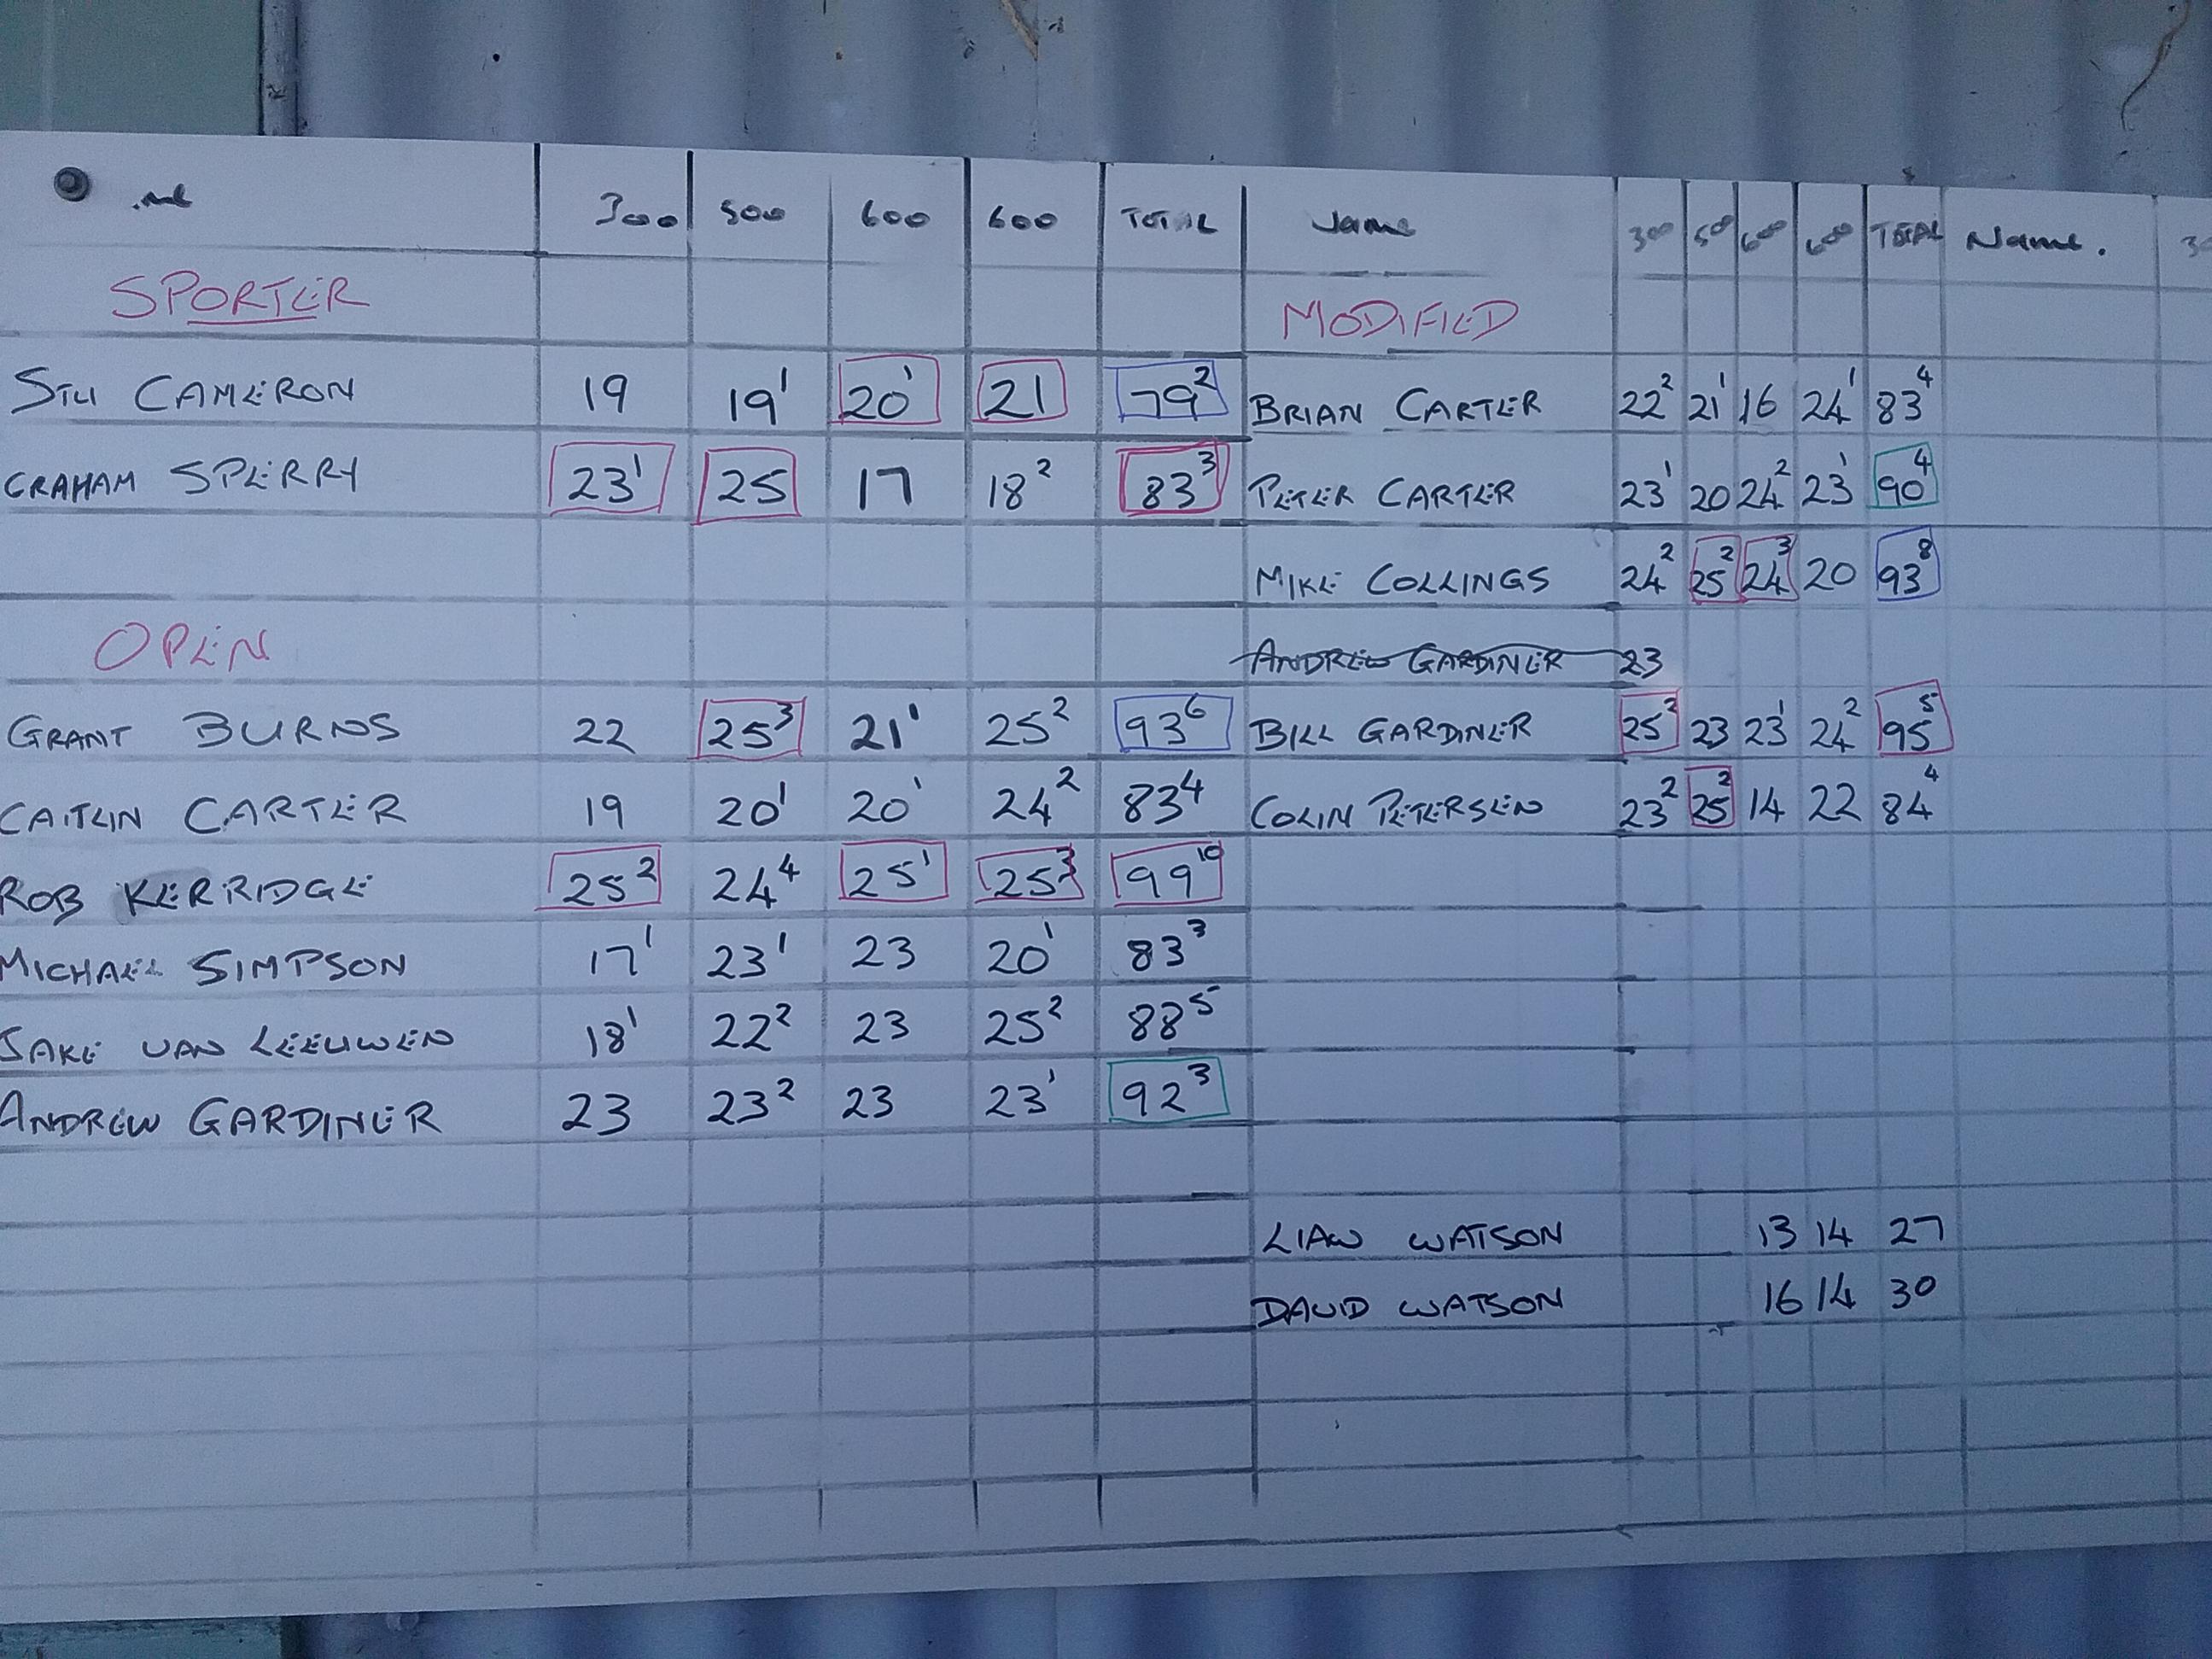 300 500 600 600 TOTAL Name 300 500 600 600 TOTAL Name. 30
SPORTER MODIFIED
STU CAMERON 19 19¹ 20¹ 21 79² BRIAN CARTER 22² 21¹ 16 24¹ 83⁴
GRAHAM SPERRY 23¹ 25 17 18² 83³ PETER CARTER 23¹ 20 24² 23¹ 90⁴
MIKE COLLINGS 24² 25² 24³ 20 93⁸
OPEN ANDREW GARDINER 23
GRANT BURNS 22 25³ 21¹ 25² 93⁶ BILL GARDINER 25² 23 23¹ 24² 95⁵
CAITLIN CARTER 19 20¹ 20¹ 24² 83⁴ COLIN PETERSEN 23² 25² 14 22 84⁴
ROB KERRIDGE 25² 24⁴ 25¹ 25³ 99¹⁰
MICHAEL SIMPSON 17¹ 23¹ 23 20¹ 83³
JAKE VAN LEEUWEN 18¹ 22² 23 25² 88⁵
ANDREW GARDINER 23 23² 23 23¹ 92³
LIAM WATSON 13 14 27
DAVID WATSON 16 14 30